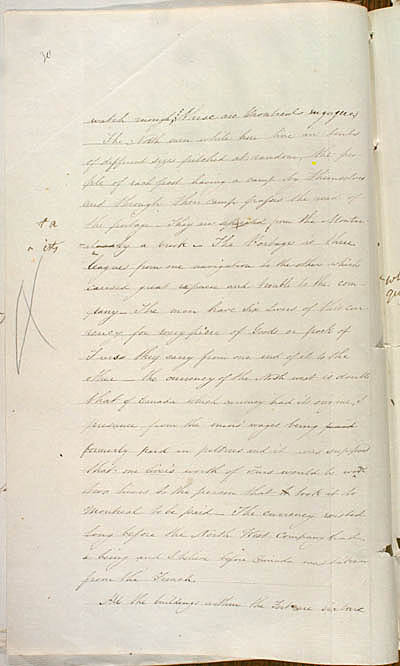 30
watch enough. These are Montreal engagees
The North men while here live in tents
of different sizes pitched at random, the peo-
ple of each post having a camp by themselves
and through their camp passes the road of
the portage. They are separated from the Montre-
by a brook. The Portage is three
leagues from one navigation to the other which
caused great expence and trouble to the com-
pany. The men have Six Livres of this cur-
rency for every piece of Goods or pack of
Furs they carry from one end of it to the
other — the currency of the North west is double
that of Canada which currency had its origine, I
presume, from the mens wages being paid
formerly paid in peltries and it was supposed
that one livres worth of Furs would be worth
two livres to the person that took it to
Montreal to be paid — The currency existed
long before the North West Company had
a being and I believe before Canada was taken
from the French.
All the buildings within the Fort are six
+ a
its